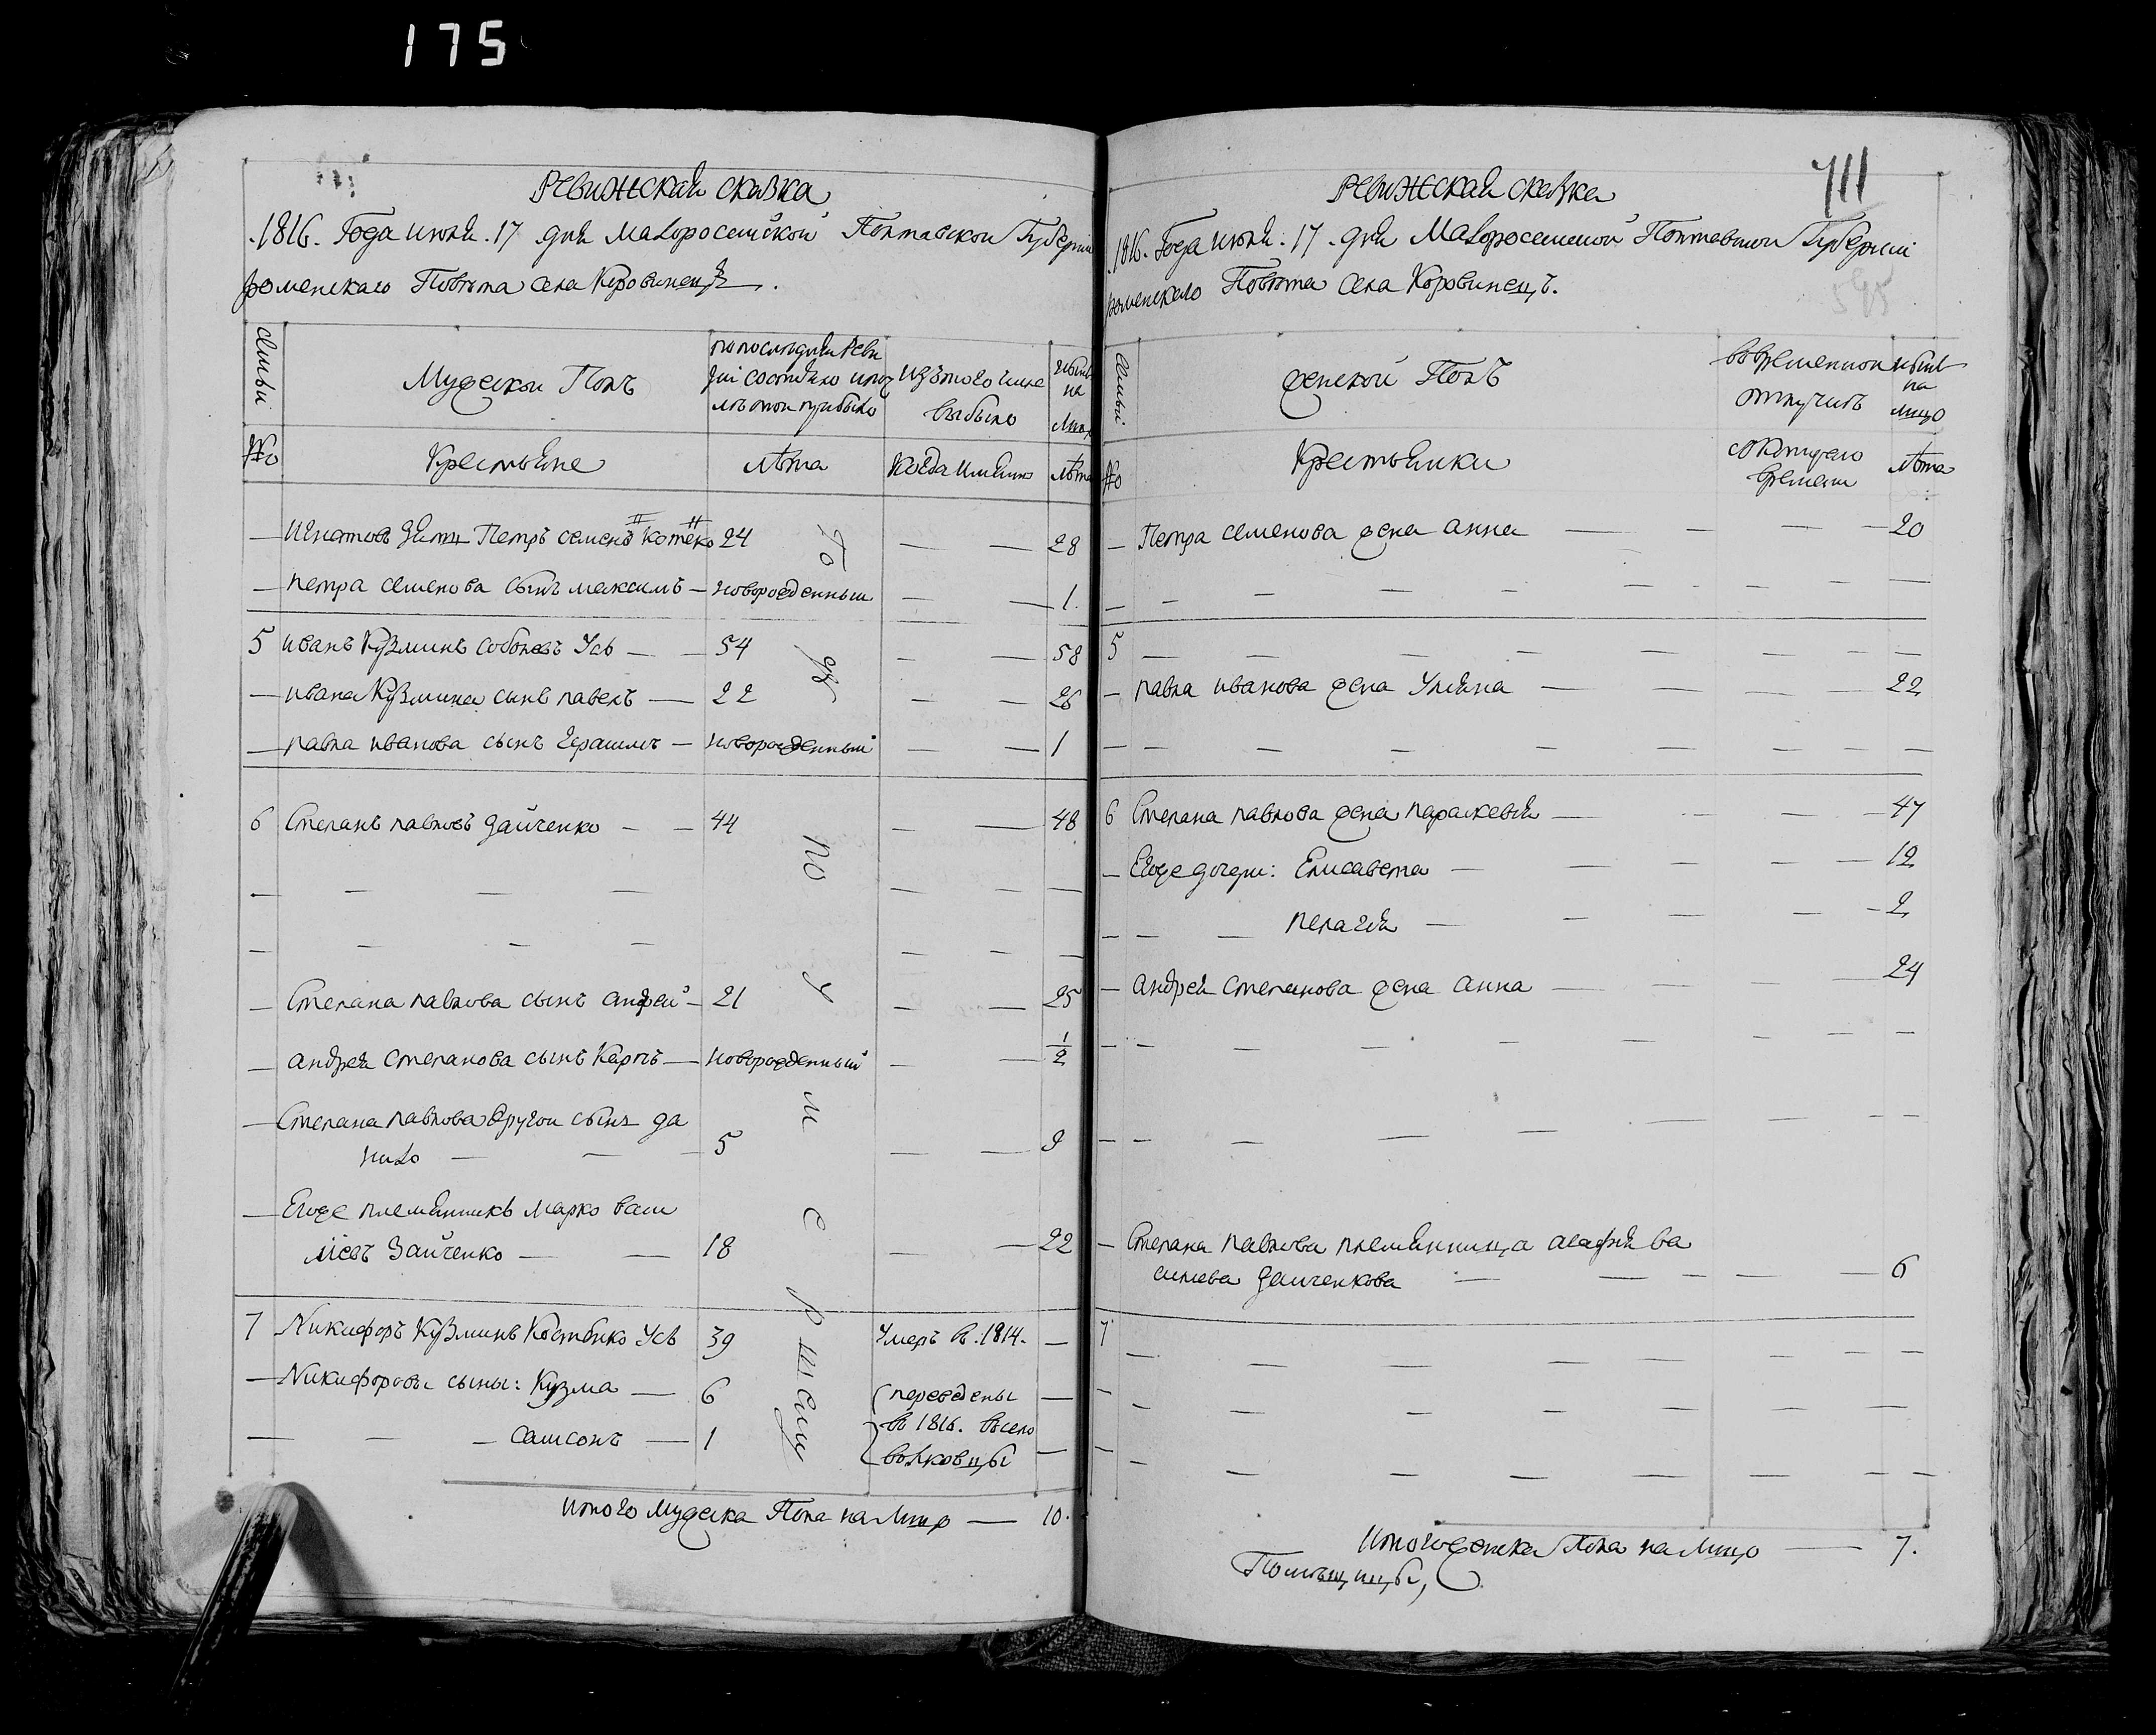 175
Ревижская сказка
.1816. Года июля .17 дня Малоросийской Полтавской Губернии
роменскаго Повѣта села Коровинецъ.
семьи
Мужескои Полъ
по последней Реви
зіи состояло и после
лѣ тои прибыло
изътого числа
выбыло
ныне
на
лицо
№
Крестьяне
лѣта
Когда имянно
лѣта
— Игнатовъ зять Петръ семеновъ 24 — — 28
— петра семенова сынъ максимъ — новорожденныи — — 1.
5 иванъ Кузминъ Усъ — — 54 — — 58
— ивана Кузмина сынъ павелъ — 22 — — 26
— павла иванова сынъ Герасимъ — новорожденный — — 1
6 Степанъ павловъ Зайченко — — 44 — — 48
— — — — — — —
— — — — — — —
— Степана павлова сынъ андрей — 21 — — 25
— андрея Степанова сынъ Карпъ — новорожденный — — 1/2
— Степана павлова другои сынъ да
нило — — — 5 — — 9
— Егоже племянникъ марко васи
лієвъ Зайченко — — 18 — — 22
7 Никифоръ Кузминъ Усъ 39 Умеръ в. 1814. —
— Никифоровы сыны: Кузма — 6 переведены —
— — — самсонъ — 1 въ 1816. въсело
волковцы —
Итого мужеска Пола на лицо — 10.
711
Ревижская сказка
.1816. Года июля .17. дня Малоросийской Полтавской Губернии
роменскаго Повѣта села Коровинецъ.
595
семьи
женской Полъ
вовременнои
отлучкѣ
ныне
на
лицо
№
Крестьянки
скотораго
времени
лѣта
— Петра семенова жена анна — — — — 20
— — — — — — — — —
5 — — — — — — —
— павла иванова жена Улияна — — — — 22
— — — — — — — — —
6 Степана павлова жена параскевия — — — — 47
— Егоже дочери: Елисавета — — — — — 12
— — — пелагея — — — — — 2
— андрея Степанова жена анна — — — — 24
— — — — — — — — —
— — — — — — — — —
— Степана павлова племянница агафия ва
силева Зайченкова — — — — — 6
7 — — — — — — — —
— — — — — — — — —
— — — — — — — — —
Итого женска Пола на лицо — 7.
Помѣщицы,